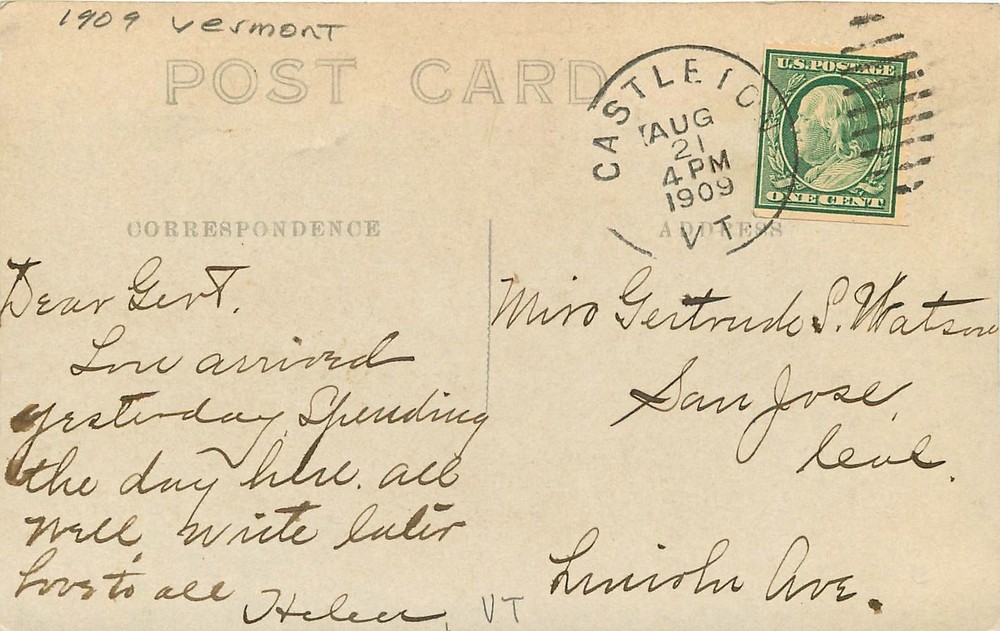 1909 Vermont
POST CARD
U.S. POSTAGE
ONE CENT
CASTLETON
AUG
21
4 PM
1909
VT
CORRESPONDENCE
ADDRESS
Dear Gert.
Lou arrived
yesterday. Spending
the day here. all
well. write later
Love to all
Helen
VT
Miss Gertrude S. Watson
San Jose,
Cal.
Lincoln Ave.